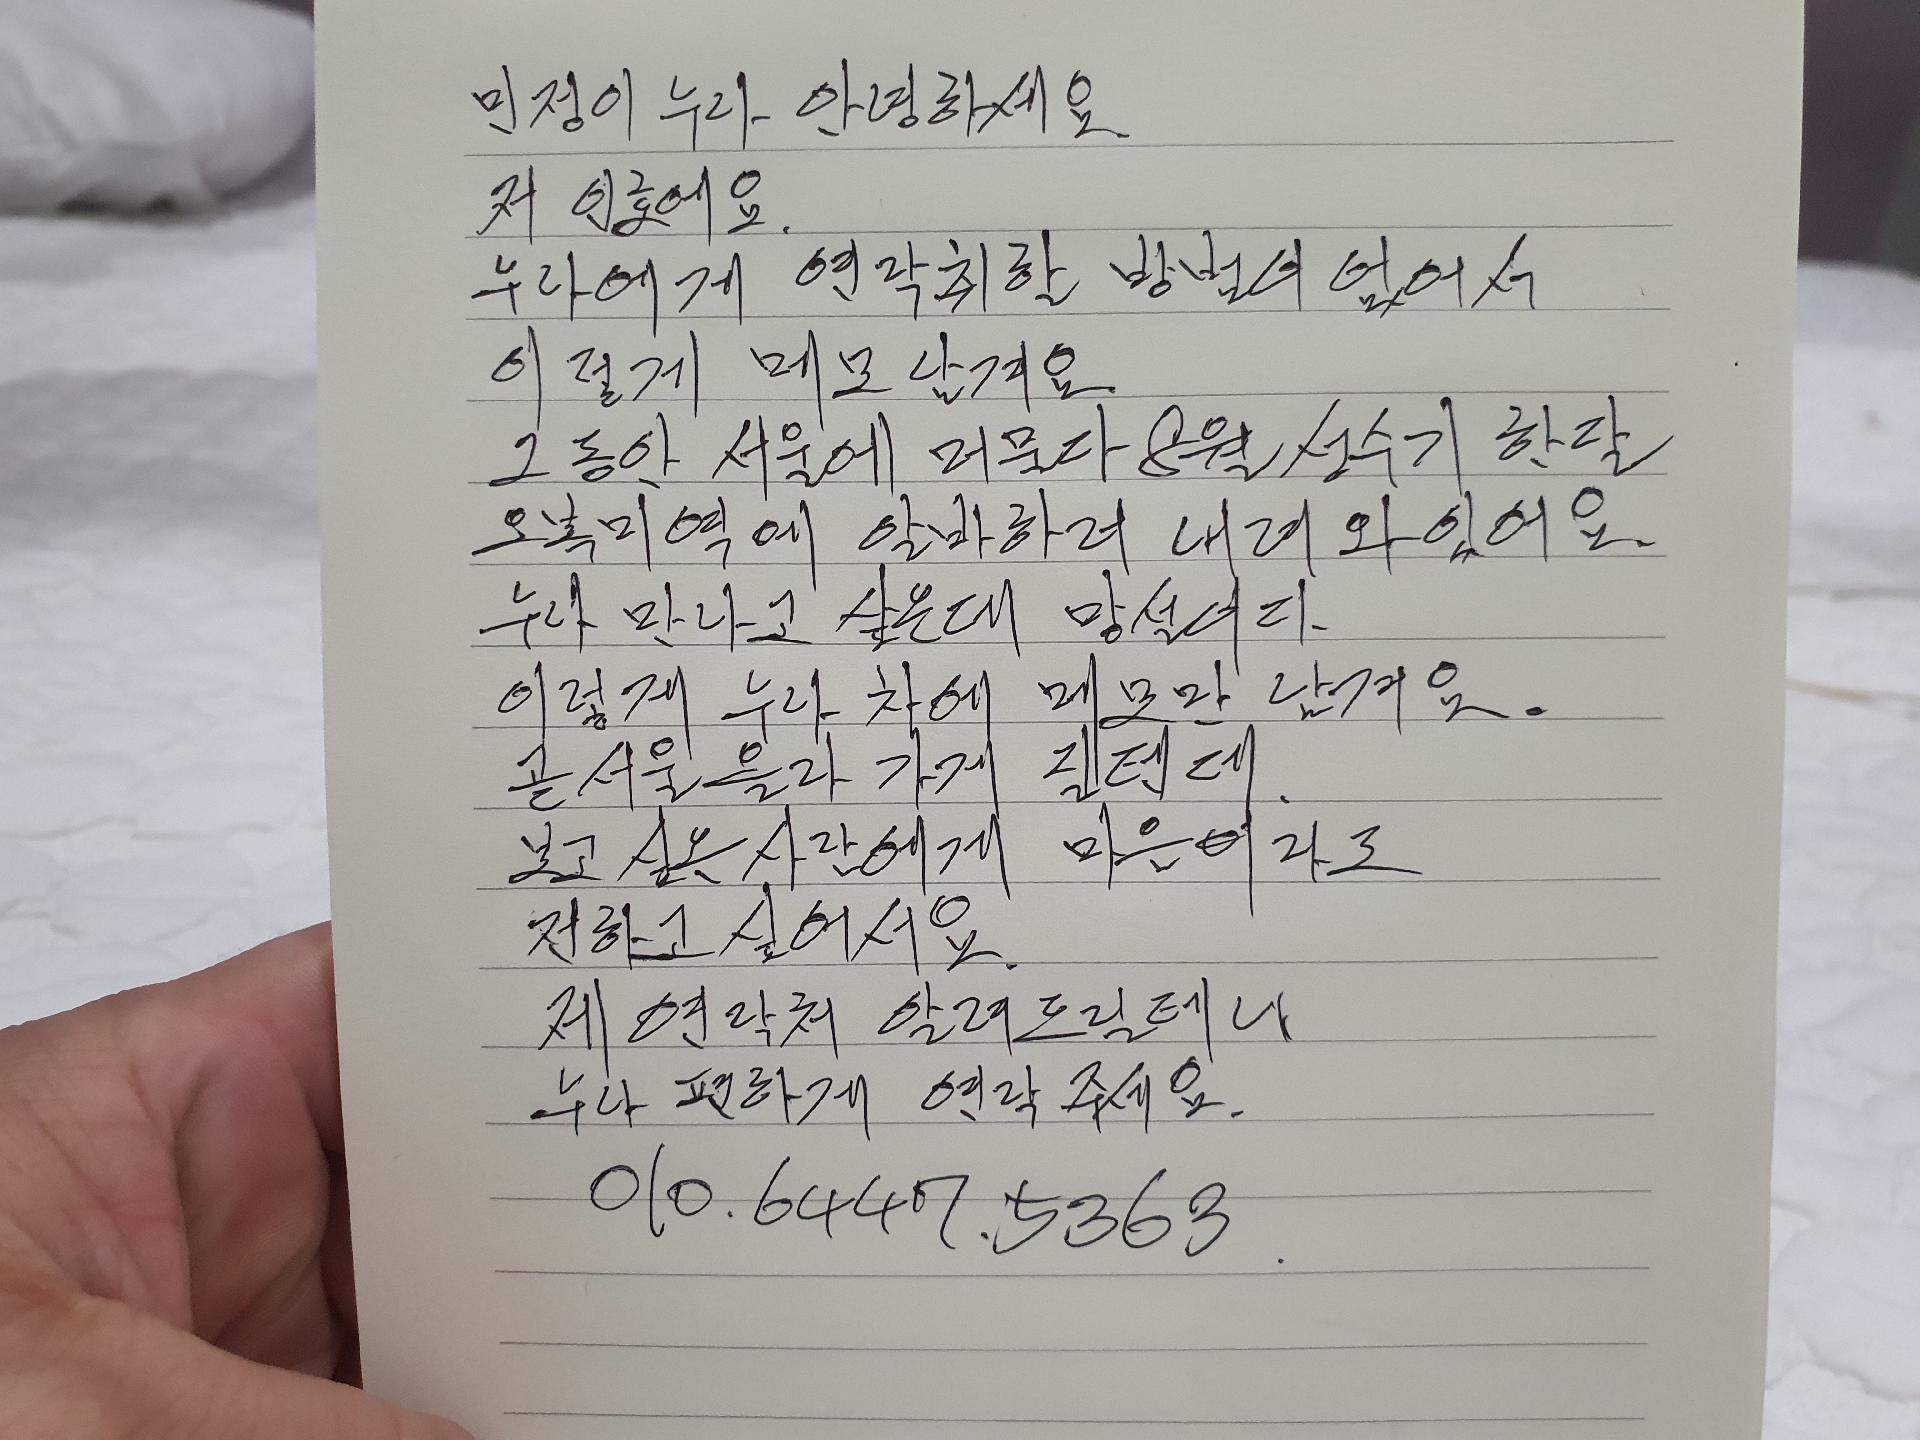 민정이 누나 안녕하세요
저 인호에요.
누나에게 연락취할 방법이 없어서
이렇게 메모 남겨요.
그동안 서울에 머물다 8월 성수기 한달
오복미역에 알바하러 내려와있어요.
누나 만나고 싶은데 망설이다
이렇게 누나 차에 메모만 남겨요.
곧 서울 올라가게 될텐데.
보고싶은 사람에게 마음이라도
전하고 싶어서요.
제 연락처 알려드릴테니
누나 편하게 연락 주세요.
010.6447.5363.